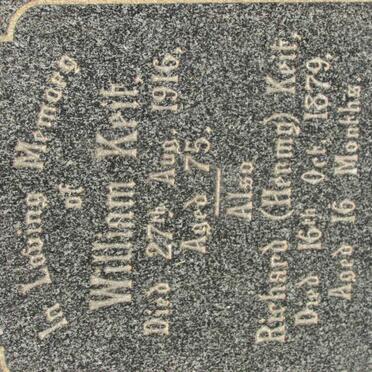 In Loving Memory
of
William Keit.
Died 27th Aug. 1916,
Aged 75.
Also
Richard (Hanny) Keit,
Died 16th Oct. 1879,
Aged 16 Months.